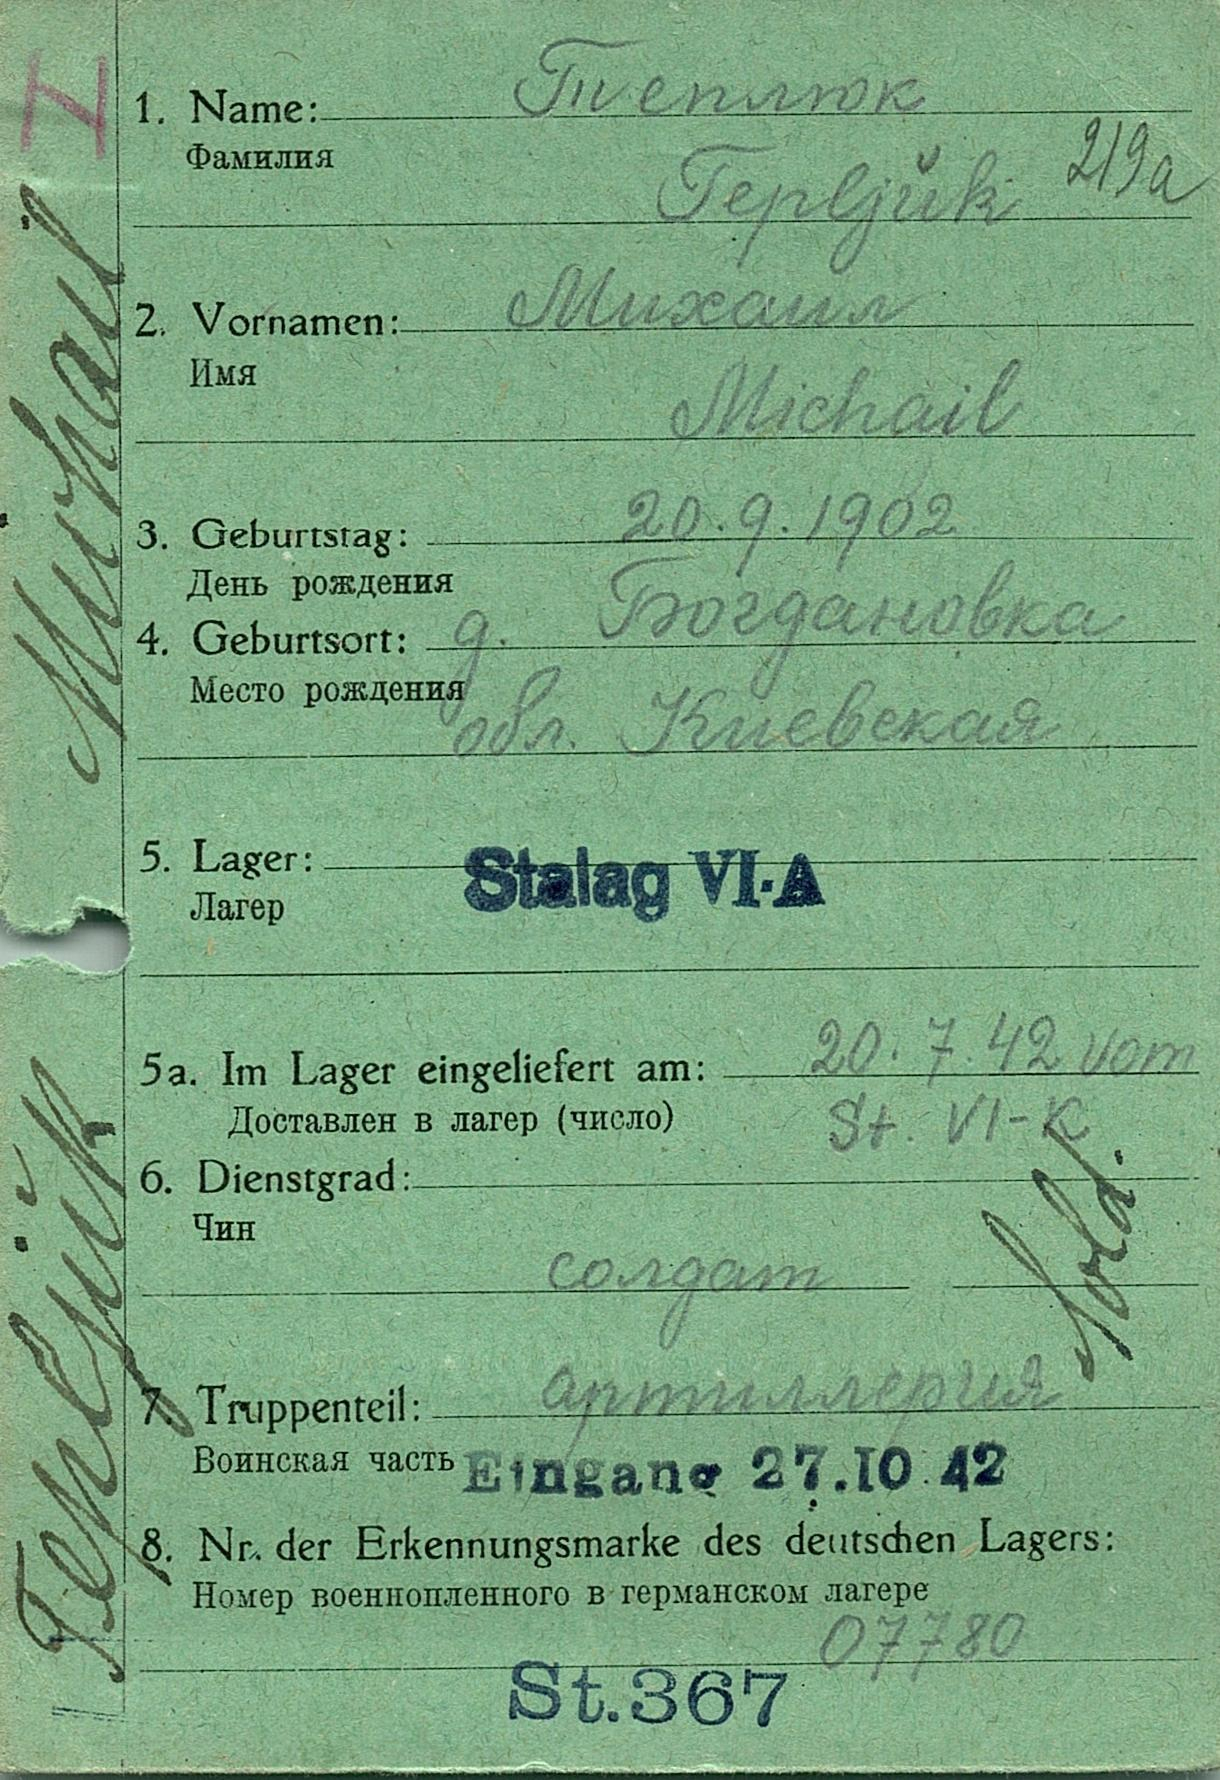 1. Name: Теплюк
Фамилия
Tepljuk 219a
2. Vornamen: Михаил
Имя
Michail
3. Geburtstag: 20.9.1902
День рождения
4. Geburtsort: д. Богдановка
Место рождения
обл. Киевская
5. Lager: Stalag VI-A
Лагер
5a. Im Lager eingeliefert am: 20.7.42 vom
Доставлен в лагер (число) St. VI-K
6. Dienstgrad: Sold.
Чин
солдат
7. Truppenteil: артиллерия
Воинская часть Eingang 27.10.42
8. Nr. der Erkennungsmarke des deutschen Lagers:
Номер военнопленного в германском лагере
07780
St.367
Tepljuk Michail